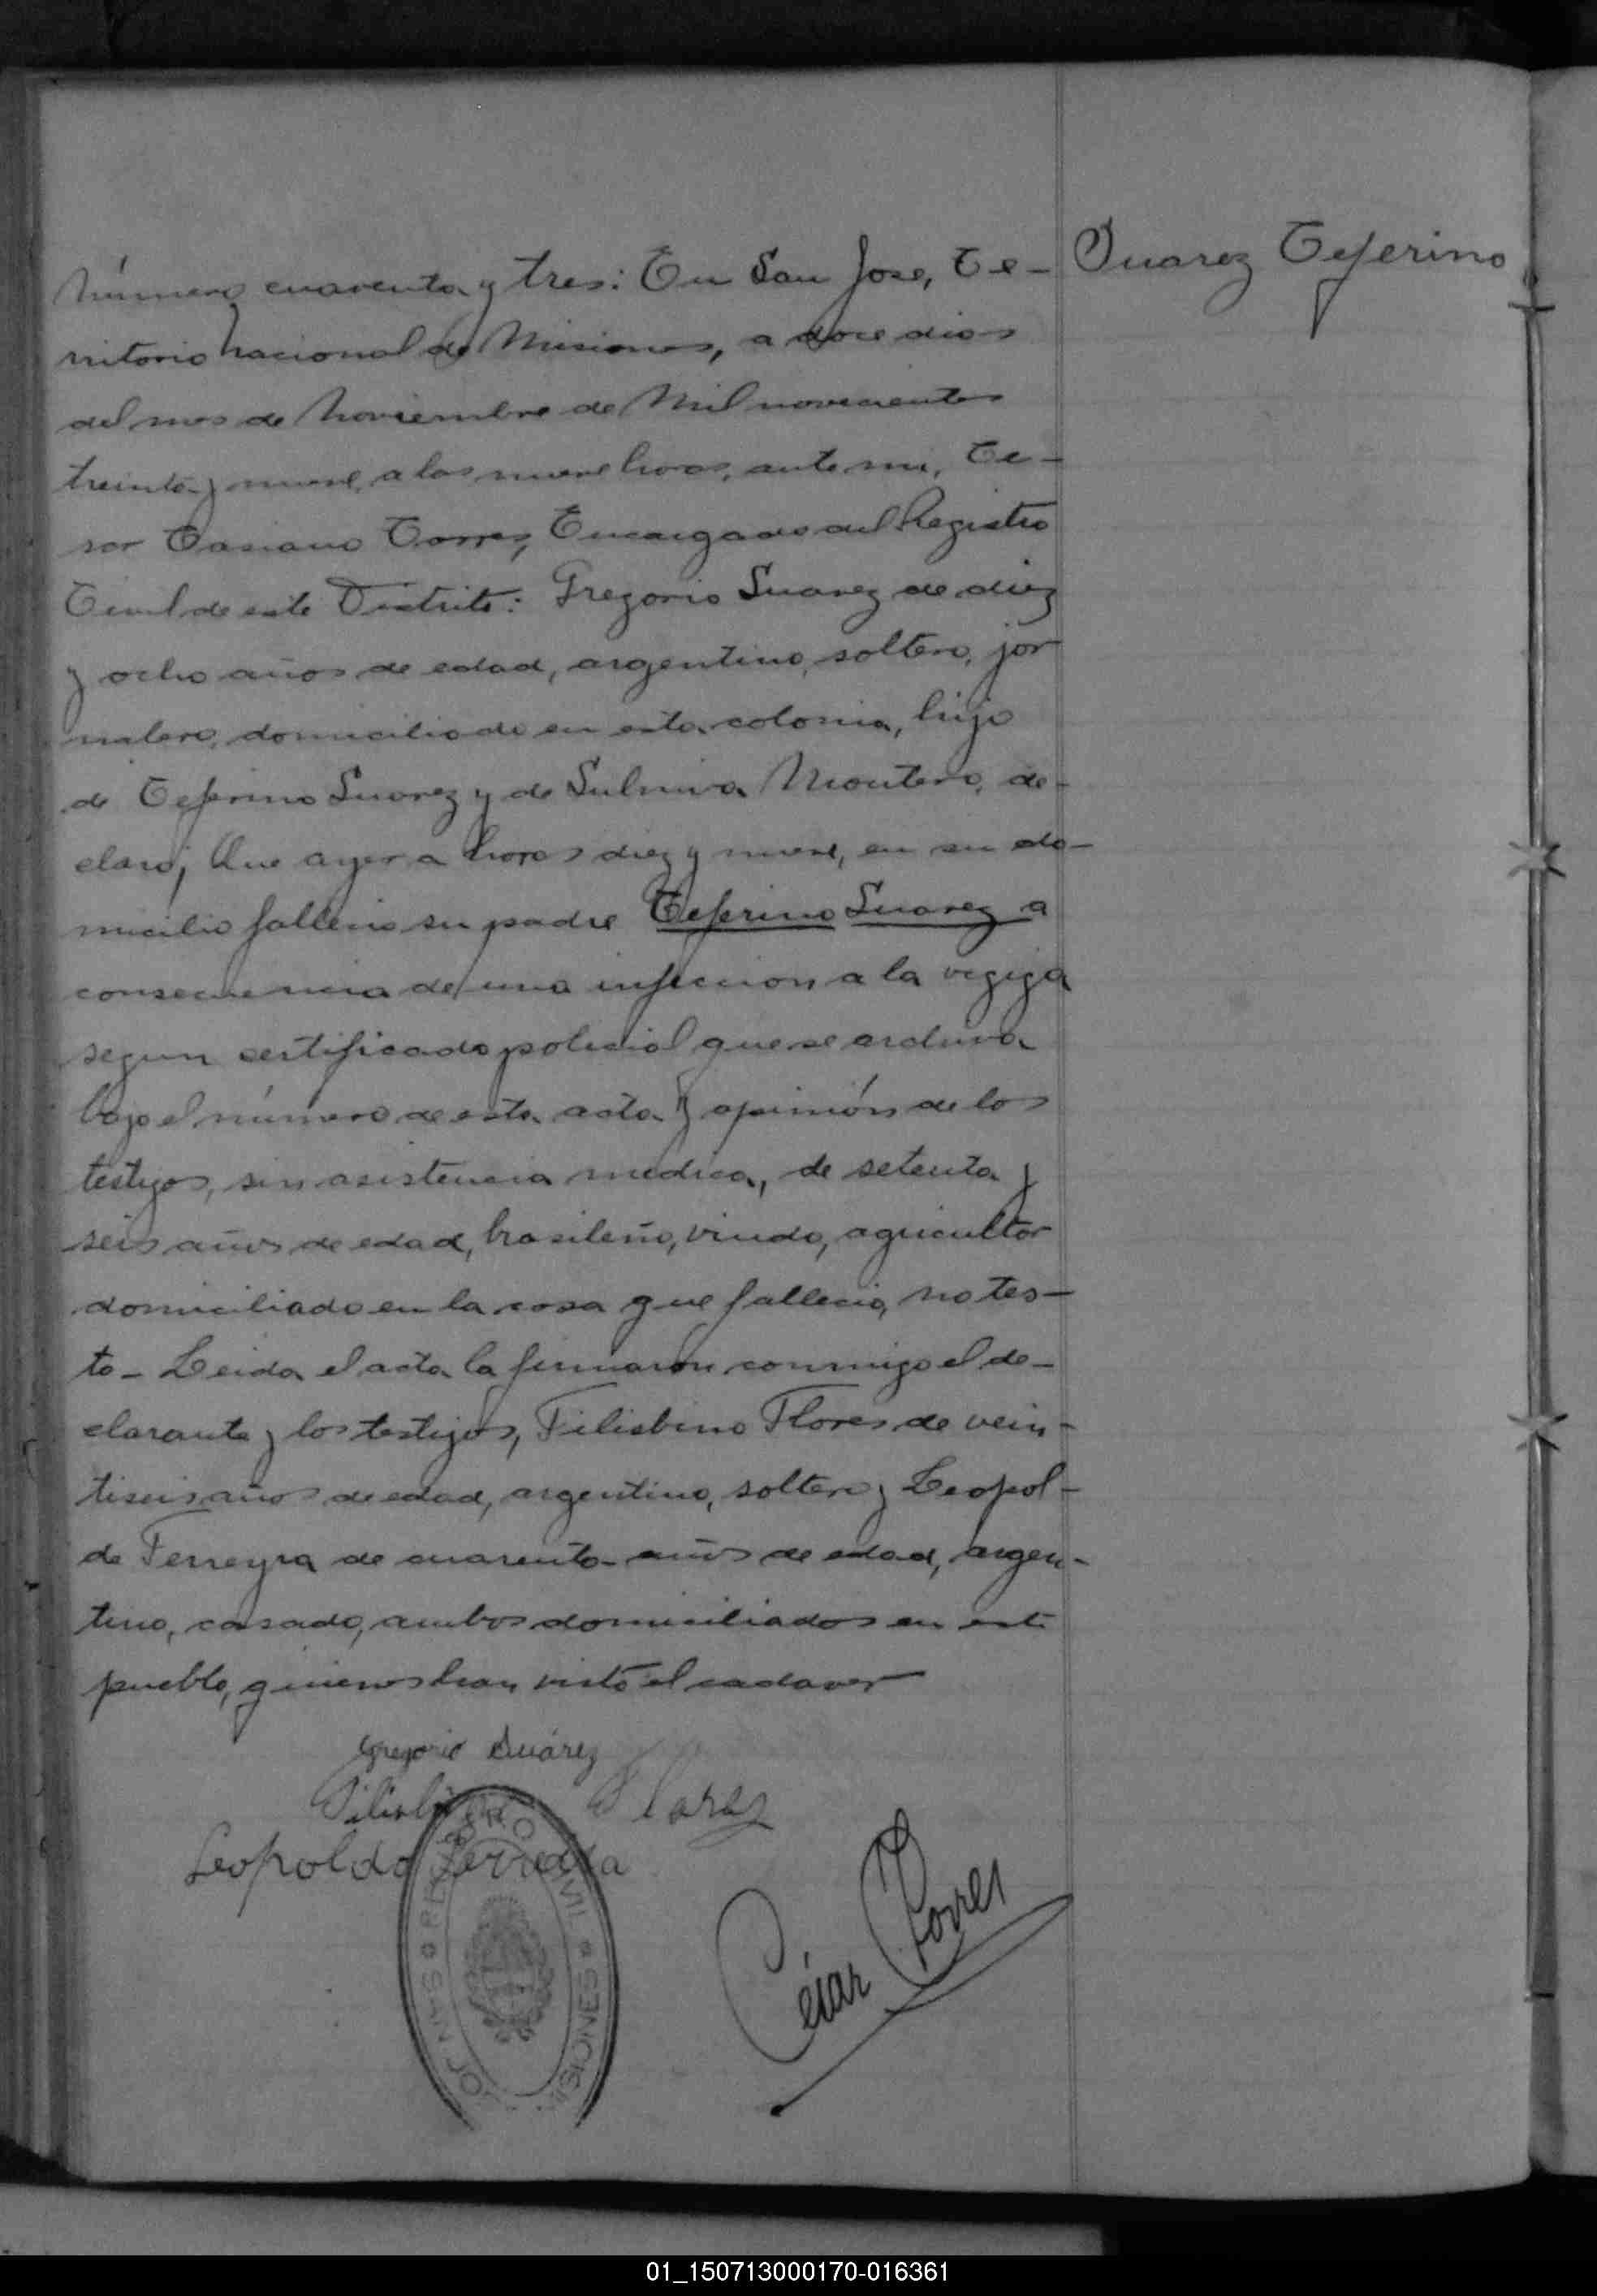 Número cuarenta y tres: En San Jose, Te-
rritorio nacional de Misiones, a doce dias
del mes de Noviembre de Mil novecientos
treinta y nueve, a las nueve horas, ante mi, Ce-
sar Casiano Torres, Encargado del Registro
Civil de este Distrito: Gregorio Suarez de diez
y ocho años de edad, argentino, soltero, jor
nalero, domiciliado en esta colonia, hijo
de Ceferino Suarez y de Montero, de-
claró; Que ayer a horas diez y nueve, en su do-
micilio fallecio su padre Ceferino Suarez a
consecuencia de una infeccion a la vegiga
segun certificado policial que se archiva
bajo el número de esta acta y opinión de los
testigos, sin asistencia medica, de setenta y
seis años de edad, brasileño, viudo, agricultor
domiciliado en la casa que fallecio, no tes-
to - Leida el acta la firmaron conmigo el de-
clarante y los testigos, Filisbino Flores de vein-
tiseis años de edad, argentino, soltero y Leopol-
do Ferreyra de cuarenta años de edad, argen-
tino, casado, ambos domiciliados en este
pueblo, quienes han visto el cadaver
Suarez Ceferino
Gregorio Suárez
Flores
Leopoldo Ferreyra
César Torres
REGISTRO CIVIL
SAN JOSE
MISIONES
01_150713000170-016361